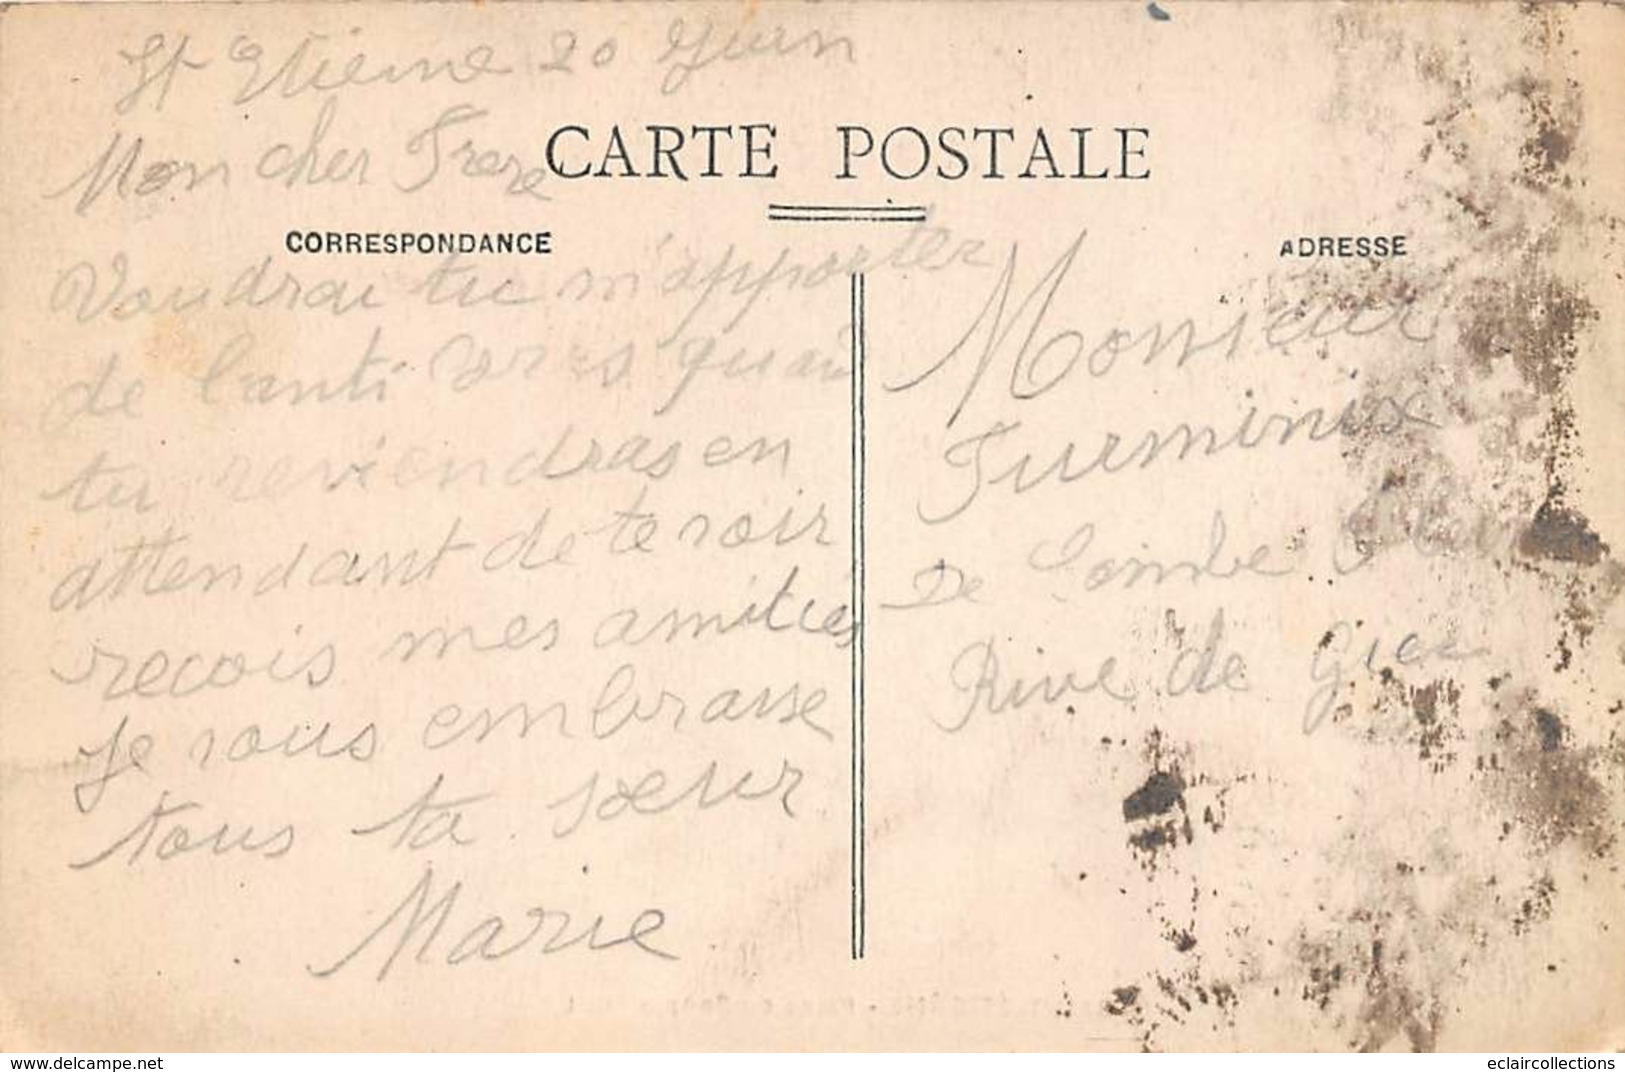 St Etienne 20 Juin
Mon cher Frere
CARTE POSTALE
CORRESPONDANCE
Voudrai tu m'apporter
de l'anti quand
tu reviendras en
attendant de te voir
recois mes amitiés
Je vous embrasse
tous ta soeur
Marie
ADRESSE
Monsieur
Turminux
De Combe
Rive de Gier
www.delcampe.net
eclaircollections